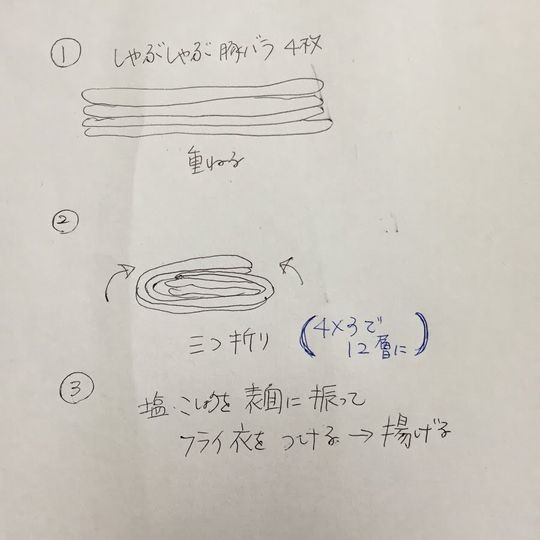 ① しゃぶしゃぶ豚バラ 4枚
重ねる
②
三つ折り (4×3で
12層に)
③
塩・こしょうを表面に振って
フライ衣をつける→揚げる